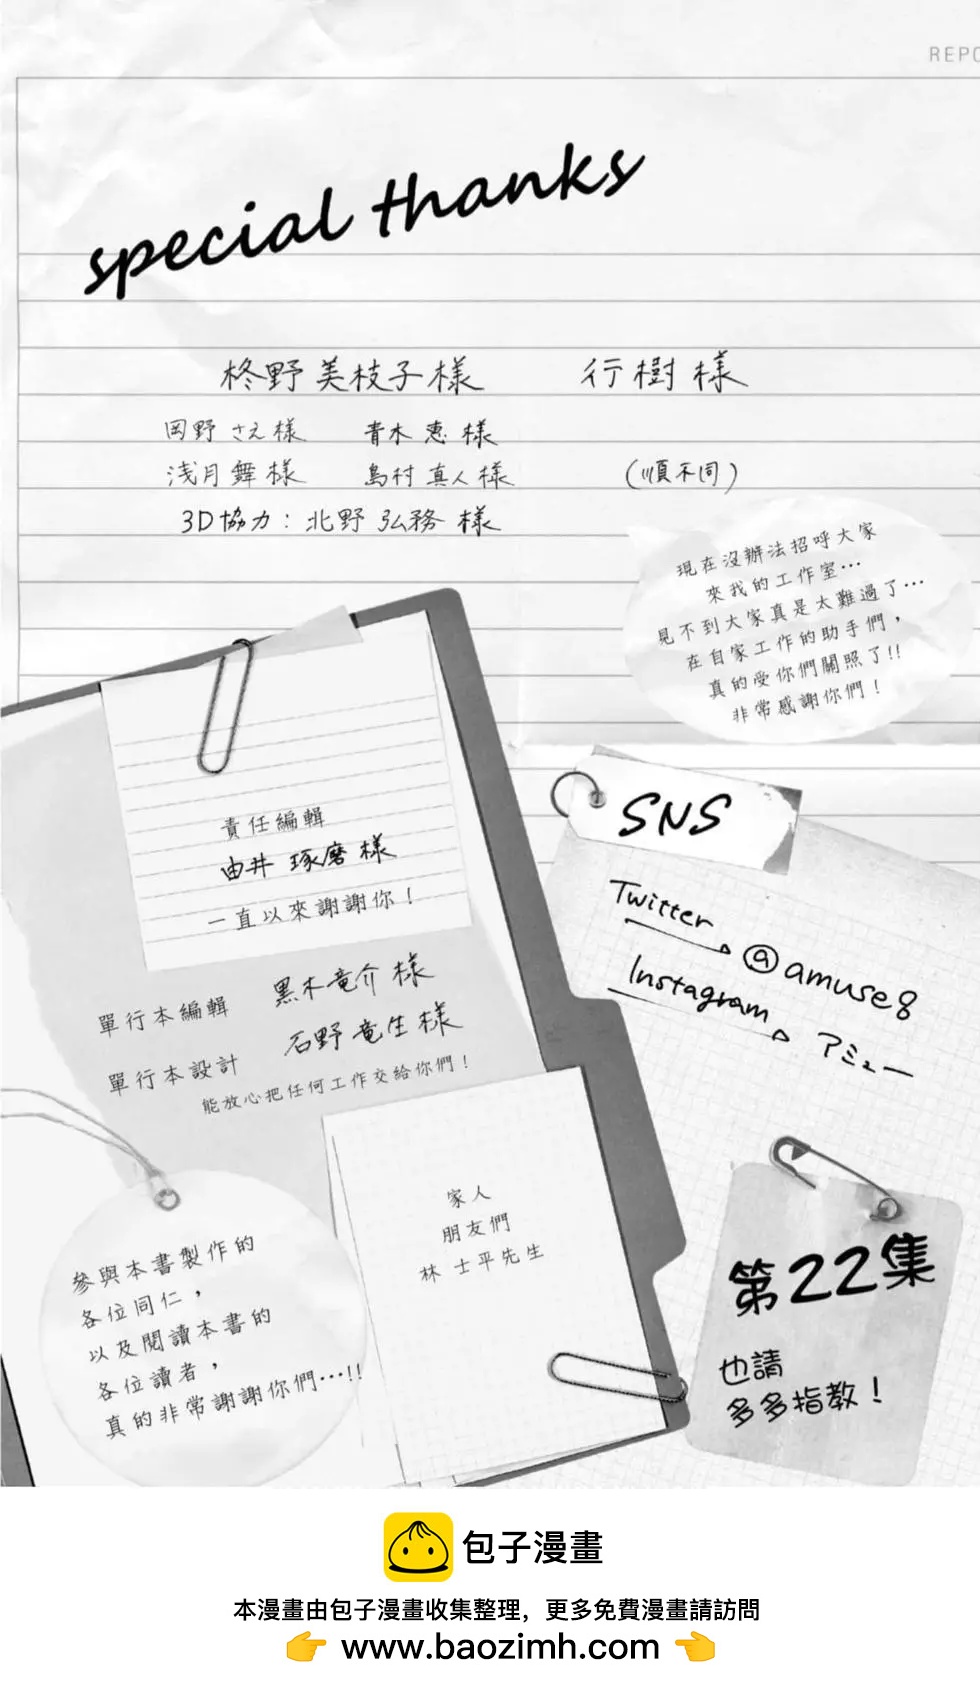 REPO
special thanks
柊野美枝子様 行樹様
岡野さえ様 青木恵様
浅月舞様 島村真人様 (順不同)
3D協力：北野弘務様
現在沒辦法招呼大家
來我的工作室…
見不到大家真是太難過了…
在自家工作的助手們，
真的受你們關照了!!
非常感謝你們！
責任編輯
由井琢磨様
一直以來謝謝你！
單行本編輯 黒木竜介様
單行本設計 石野竜生様
能放心把任何工作交給你們！
SNS
Twitter
@amuse8
Instagram
アミュー
家人
朋友們
林士平先生
參與本書製作的
各位同仁，
以及閱讀本書的
各位讀者，
真的非常謝謝你們…!!
第22集
也請
多多指教！
包子漫畫
本漫畫由包子漫畫收集整理，更多免費漫畫請訪問
👉 www.baozimh.com 👈